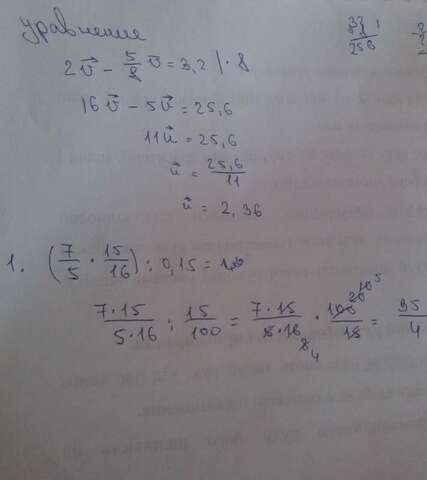 уравнение
2v⃗ - 5/8 v⃗ = 3,2 | · 8
16v⃗ - 5v⃗ = 25,6
11u⃗ = 25,6
u⃗ = 25,6/11
u⃗ = 2,36
1. (7/5 · 15/16) : 0,15 =
7·15/5·16 : 15/100 = 7·15/5·16 · 100/15 = 35/4